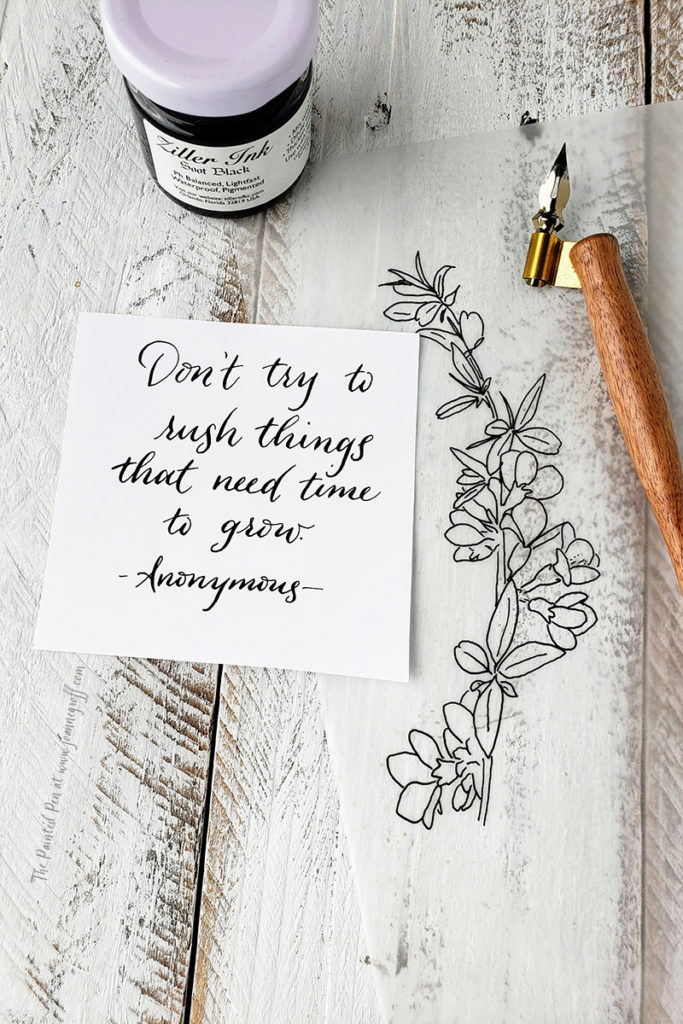 Ziller Ink
Soot Black
Ph Balanced, Lightfast
Waterproof, Pigmented
Visit our website: zillerofkc.com
Orlando, Florida 32819 USA
Don't try to
rush things
that need time
to grow.
- Anonymous -
The Painted Pen at www.joannegroff.com